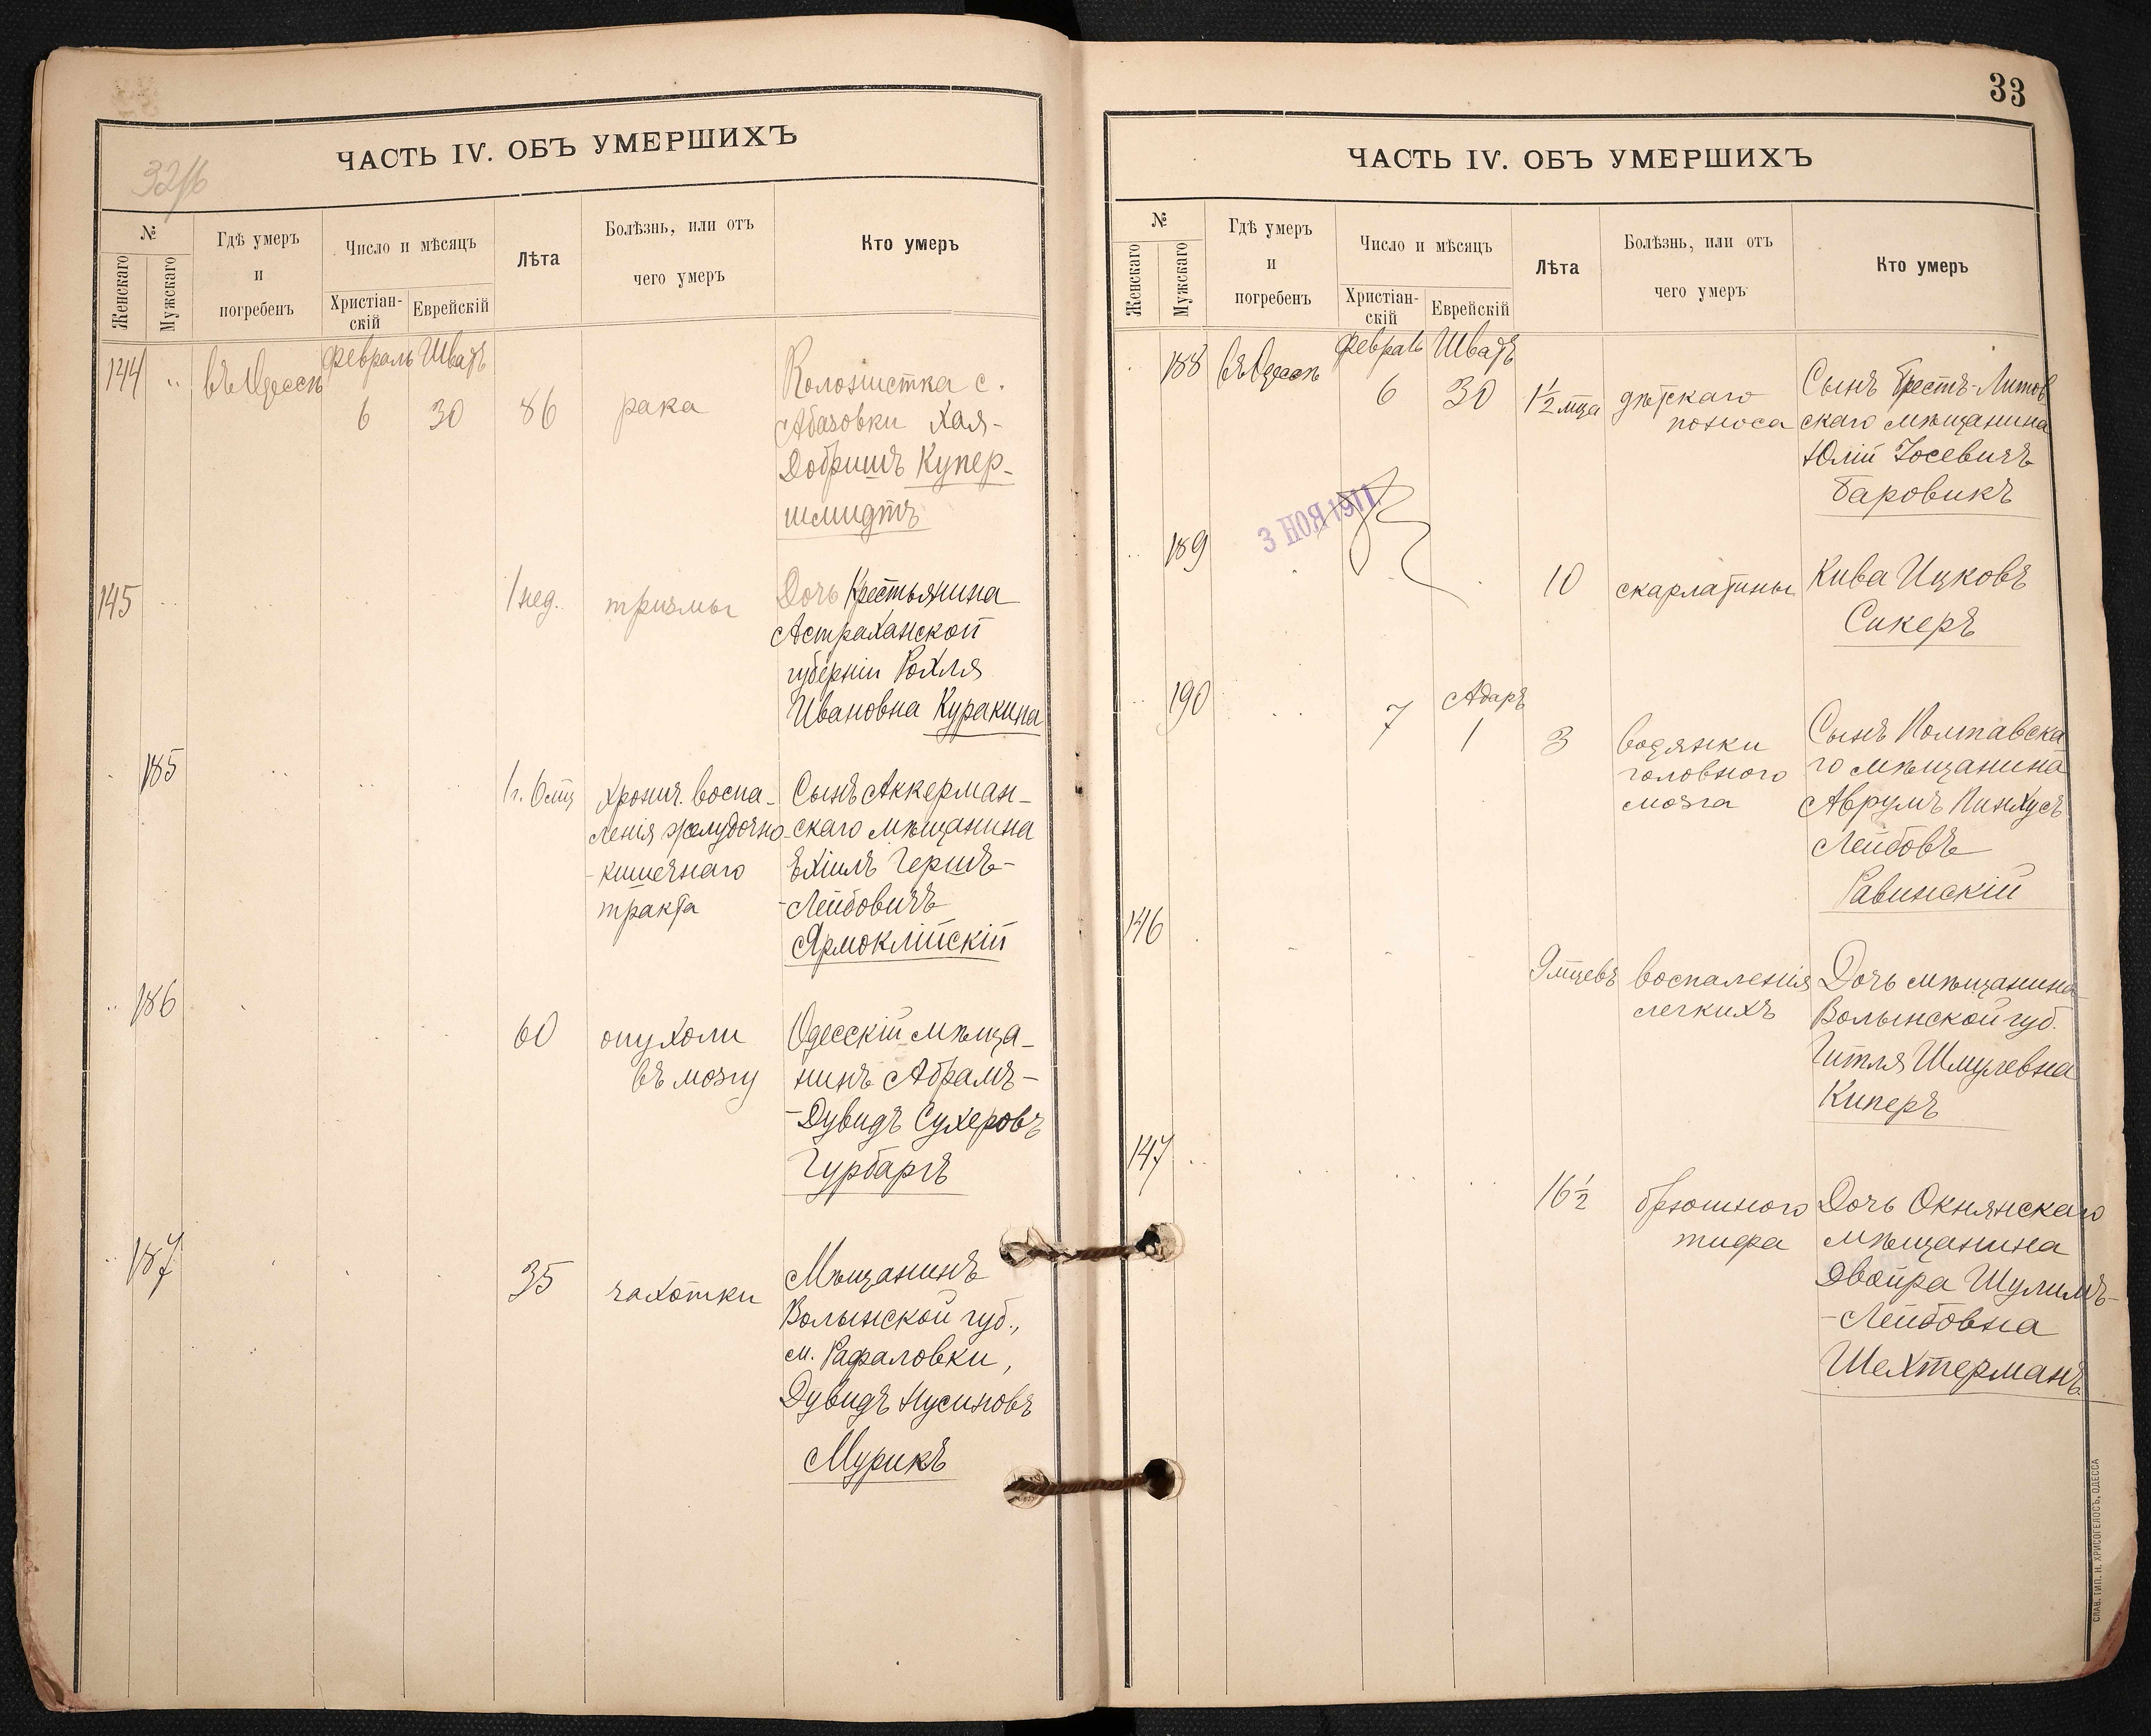 32/б
ЧАСТЬ IV. ОБЪ УМЕРШИХЪ
№
Женскаго
Мужскаго
Гдѣ умеръ
и
погребенъ
Число и мѣсяцъ
Христіан-
скій
Еврейскій
Лѣта
Болѣзнь, или отъ
чего умеръ
Кто умеръ
144 " въ Одессѣ
Февраль Шватъ
6 30 86 рака
Колонистка с.
Абазовки Хая-
Добришъ Купер-
шмидтъ
145
1 нед. тризмы
Дочь Крестьянина
Астраханской
губерніи Рохля
Ивановна Куракина
185
1 г. 6 мц
Хронич. воспа-
ленія желудочно
-кишечнаго
тракта
Сынъ Аккерман-
скаго мѣщанина
Ѣхіилъ Гершъ-
-Лейбовичъ
Ярмоклійскій
186
60 опухоли
въ мозгу
Одесскій мѣща-
нинъ Абрамъ-
-Дувидъ Сухеровъ
Гурбаргъ
187
35 чахотки
Мѣщанинъ
Волынской губ.,
м. Рафаловки,
Дувидъ Нусиновъ
Мурикъ
33
ЧАСТЬ IV. ОБЪ УМЕРШИХЪ
№
Женскаго
Мужскаго
Гдѣ умеръ
и
погребенъ
Число и мѣсяцъ
Христіан-
скій
Еврейскій
Лѣта
Болѣзнь, или отъ
чего умеръ
Кто умеръ
188 въ Одессѣ
Февраль Шватъ
6 30 1½ мца
дѣтскаго
поноса
Сынъ Брестъ-Литов
скаго мѣщанина
Юлій Іосевичъ
Баровикъ
3 НОЯ 1911
189
10 скарлатины
Кива Ицковъ
Сикеръ
190
7 Адаръ
1 3
водянки
головного
мозга
Сынъ Полтавска
го мѣщанина
Аврумъ Пинхусъ
Лейбовъ
Равинскій
146
9 мцевъ
воспаленія
легкихъ
Дочь мѣщанина
Волынской губ.
Гитля Шмулевна
Киперъ
147
16½
брюшного
тифа
Дочь Окнянскаго
мѣщанина
Двойра Шулимъ-
-Лейбовна
Шехтерманъ
СЛАВ. ТИП. Н. ХРИСОГЕЛОСЪ, ОДЕССА